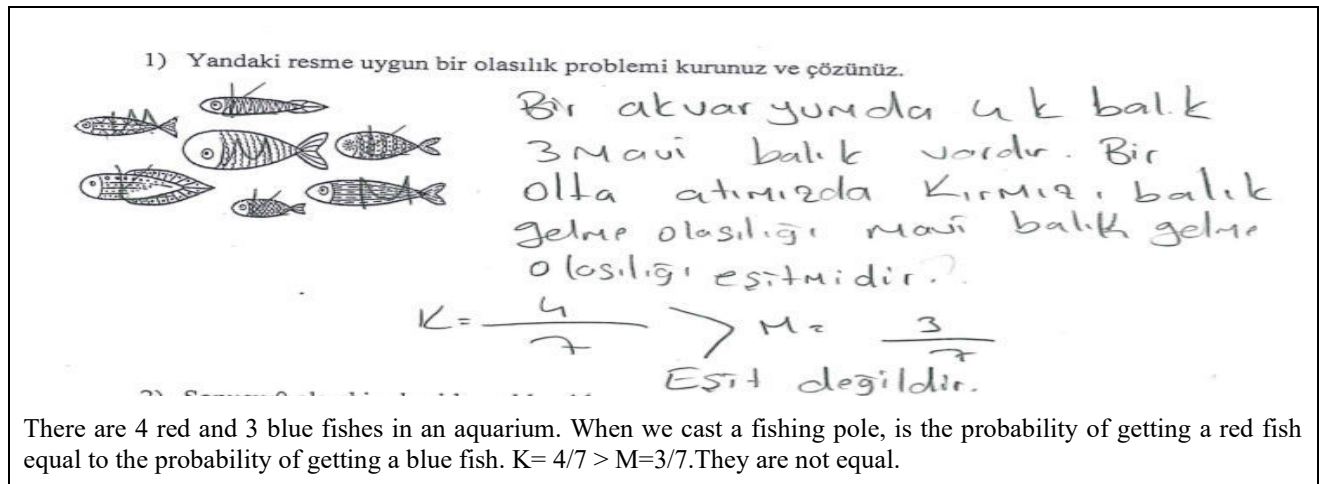 1) Yandaki resme uygun bir olasılık problemi kurunuz ve çözünüz.
Bir akvaryumda 4 k balık
3 Mavi balık vardır. Bir
olta atımızda Kırmızı balık
gelme olasılığı mavi balık gelme
olasılığı eşitmidir.?
K = 4/7 > M = 3/7
Eşit değildir.
There are 4 red and 3 blue fishes in an aquarium. When we cast a fishing pole, is the probability of getting a red fish
equal to the probability of getting a blue fish. K= 4/7 > M=3/7.They are not equal.